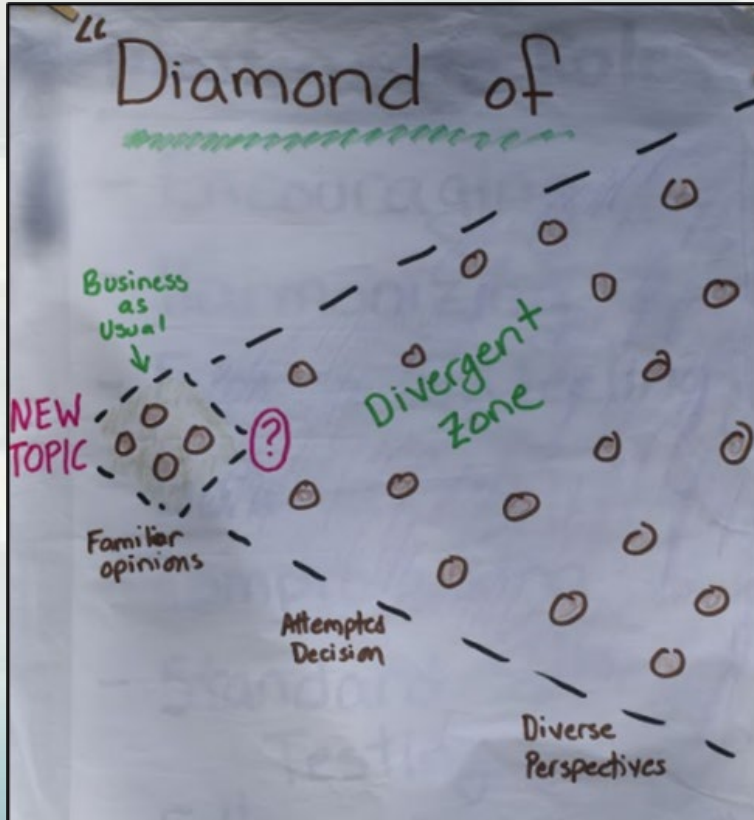 "Diamond of
Business
as
Usual
NEW
TOPIC
?
Divergent
Zone
Familiar
opinions
Attempted
Decision
Diverse
Perspectives